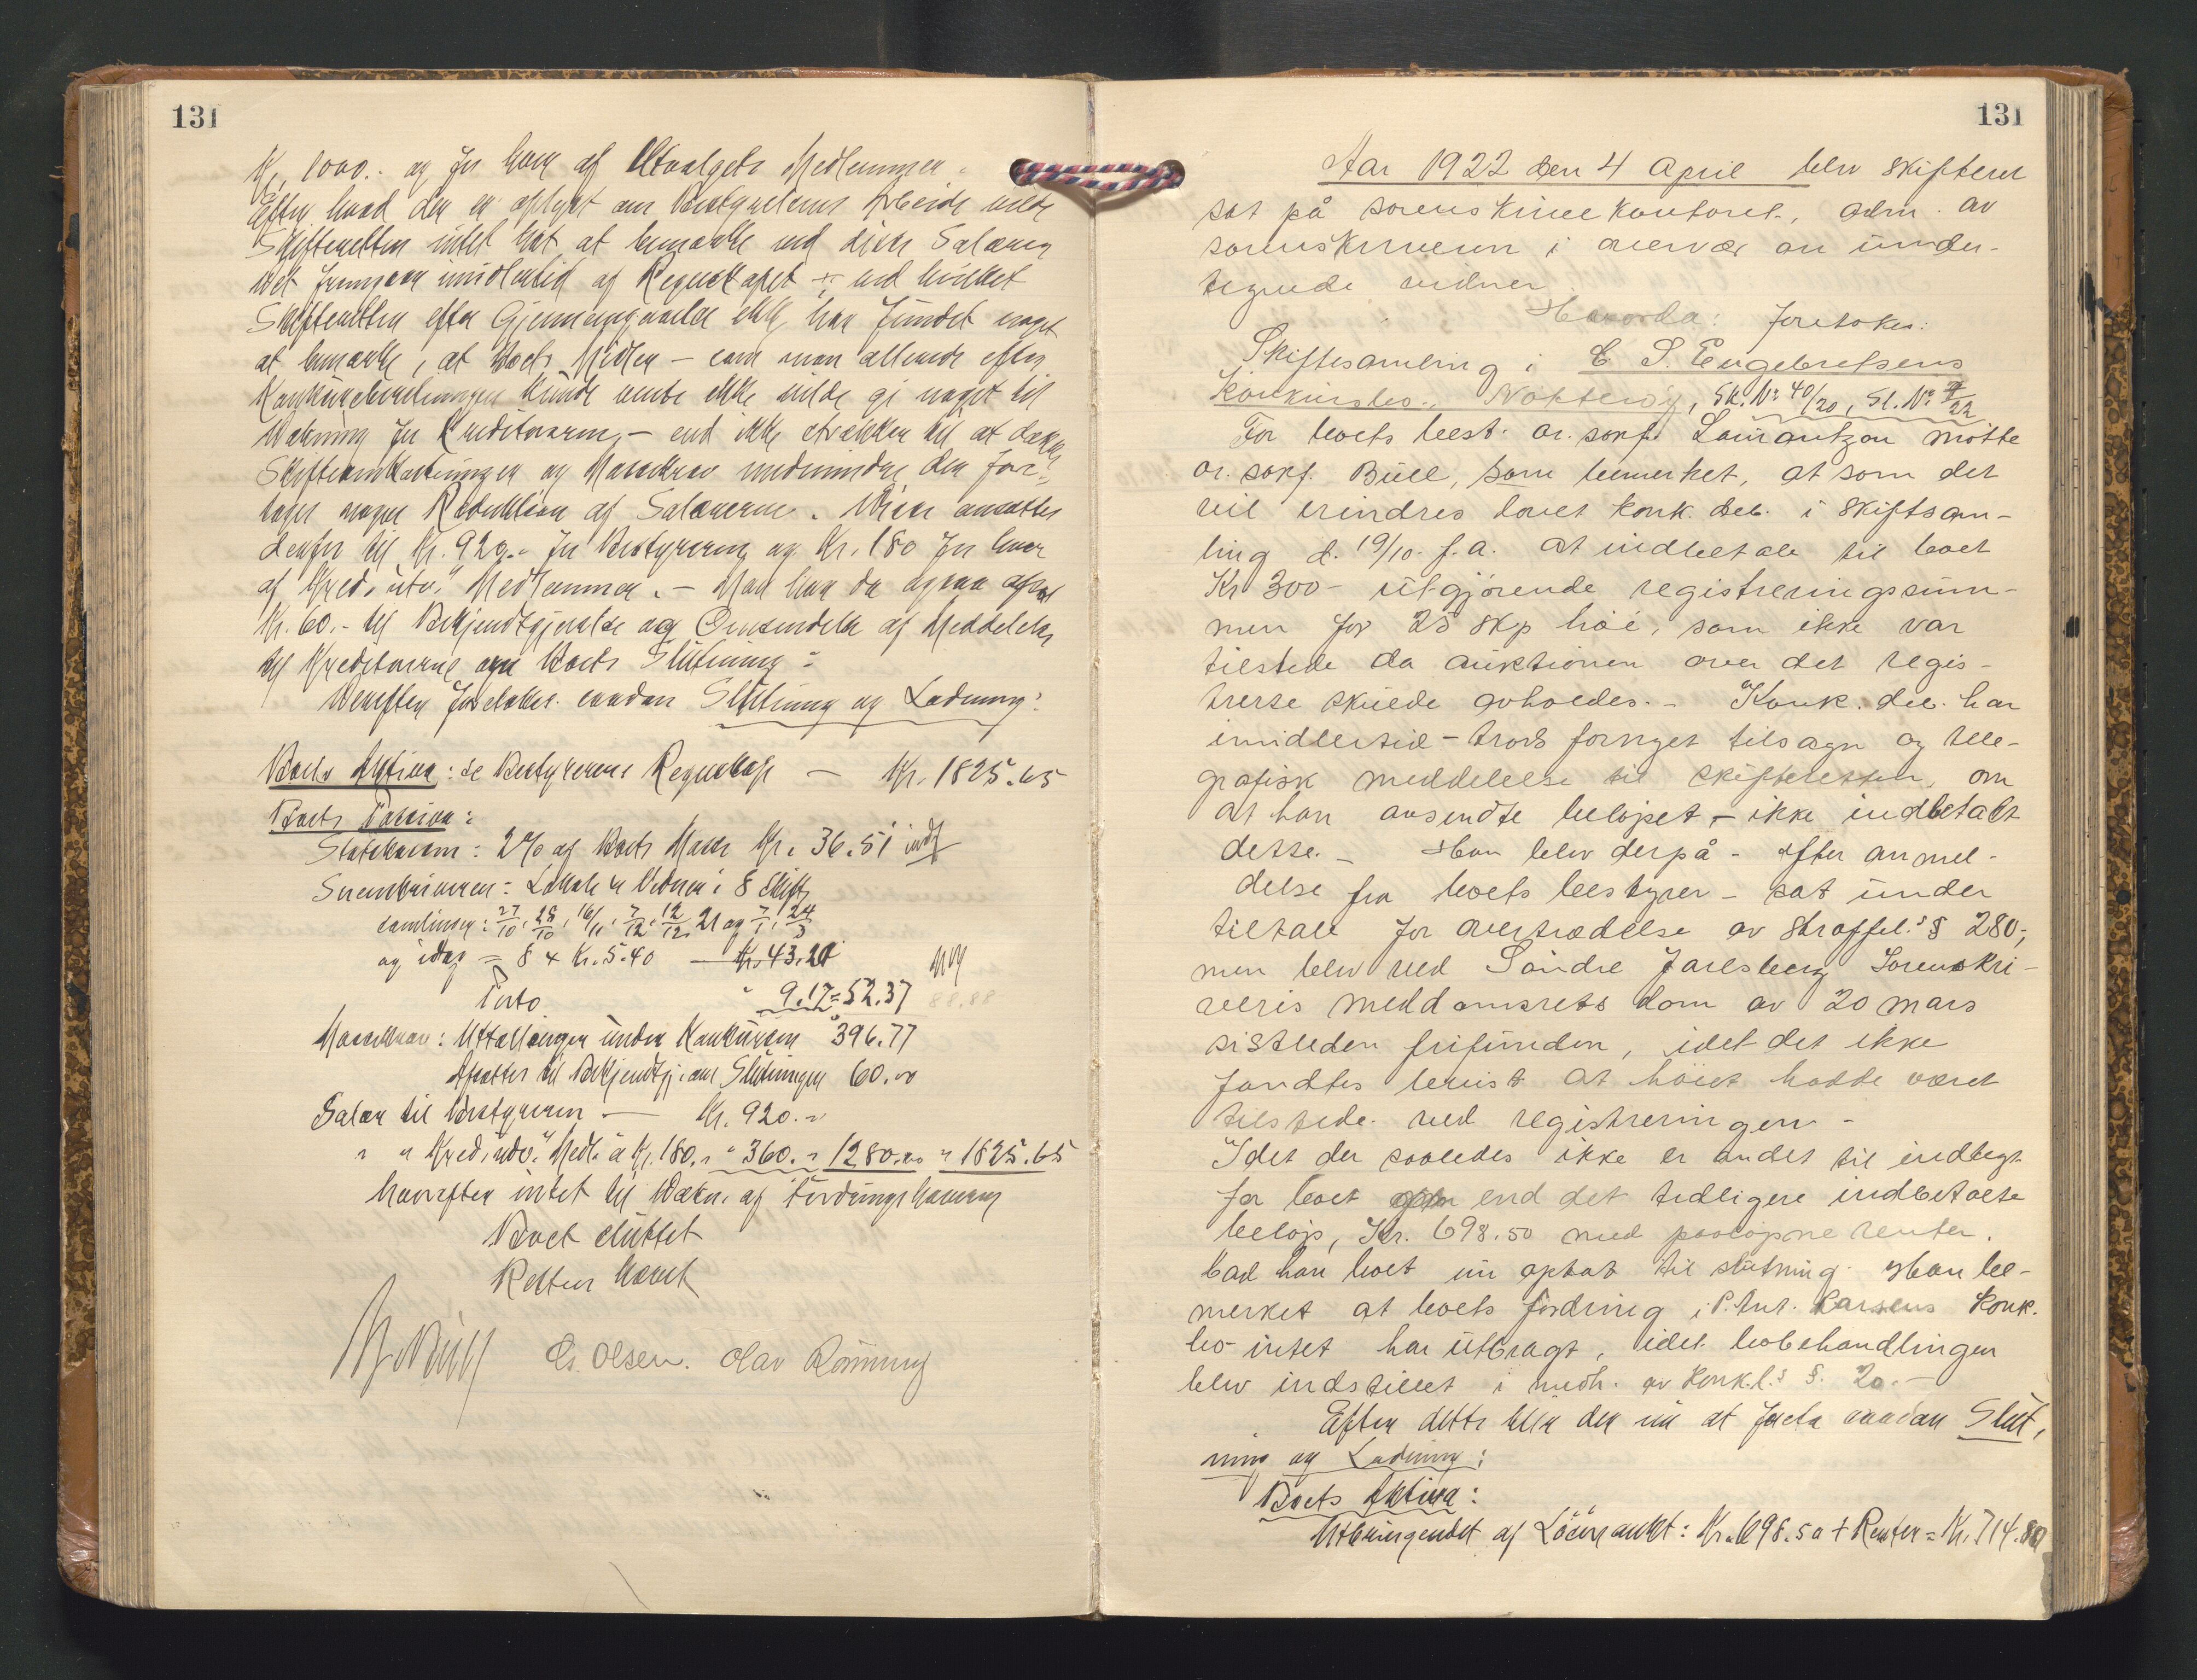 131
Kr. 1000.- og for hver af Utvalgets Medlemmer.
Efter hvad der er oplyst om Bestyrerens Arbeide vilde
Skifteretten intet hat at bemærke ved disse Salærer
Det fremgaar imidlertid af Regnskapet -:- ved hvilket
Skifteretten efter Gjennemgaaelse ikke har fundet noget
at bemærke, at Boets Midler - som man allerede efter
Konkursbehandlingen kunde vente ikke vilde gi noget til
Dækning for Kreditorerne, - end ikke strækker til at dække
Skifteomkostninger og Massekrav medmindre der fore-
tages nogen Reduktion af Salærerne. Disse ansættes
derfor til Kr. 920.- for Bestyreren og Kr. 180 for hver
af Kred. utv.s Medlemmer. - Man har da ogsaa afsat
Kr. 60.- til Bekjendtgjørelse og Omsendelse af Meddelelse
til Kreditorerne om Boets Slutning -
Derefter foretokes saadan Slutning og Lodning:
Boets Aktiva: se Bestyrerens Regnskap — Kr. 1825.65
Boets Passiva:
Statskassen: 2% af Boets Masse Kr. 36.51 indf
Sorenskriveren: Lokale & Vidner i 8 Skifte
samlinger: 27/10, 28/10, 16/11, 7/12, 12/12 21 og 7/1, 24/3
og idag = 8 x Kr. 5.40 — Kr. 43.20
Porto " 9.17 = 52.37
Massekrav: Uttællinger under Konkursen " 396.77
Afsattes til Bekjendtgj. om Slutningen 60.00
Salær til Bestyreren — Kr. 920.-
" " Kred. udv.s Medl. à Kr. 180. " 360. - 1280.00 " 1825.65
hvorefter intet til Dækn. af Fordringshaverne
Boet sluttet
Retten hævet
Cs. Olsen. Olav Rønning
131
Aar 1922 den 4 April blev skifteret
sat på sorenskriverkontoret, adm. av
sorenskriveren i overvær av under-
tegnede vidner
Hvorda: foretokes:
Skiftesamling i C. S. Engebretsens
Konkursbo, Nøtterøy, Sk. Nº 40/20, Sl. Nº 7/22
For boets best. or. sakf. Laurantzon møtte
or. sakf. Büll, som bemerket, at som det
vil erindres lovet konk. deb. i skiftesam-
ling d. 19/10. f.a. at indbetale til boet
Kr 300- utgjørende registreringssum-
men for 25 skp høi, som ikke var
tilstede da auktionen over det regis-
trerte skulde avholdes. - Konk. deb. har
imidlertid - trods fornyet tilsagn og tele-
grafisk meddelelse til skifteretten, om
at han avsendte beløpet - ikke indbetalt
dette. - Han blev derpå - efter anmel-
delse fra boets bestyrer - sat under
tiltale for overtrædelse av straffel.s § 280-,
men blev ved Søndre Jarlsberg Sorenskri-
veris meddomsrets dom av 20 mars
sistleden frifunden, idet det ikke
fandtes bevist at høiet hadde været
tilstede ved registreringen -
Idet der saaledes ikke er andet til indtegt
for boet end det tidligere indbetalte
beløp, Kr. 698.50 med paaløpne renter.
bad han boet nu optat til slutning. Han be-
merket at boets fordring i P. Ant. Larsens konk.
bo intet har utbragt, idet bobehandlingen
blev indstillet i medh. av konk.l.s §. 20. -
Efter dette blev der nu at foreta saadan Slut,
ning og Lodning:
Boets Aktiva:
Utbringendet af Løsøreauk: Kr. 698.50 + Renter = Kr. 714.80